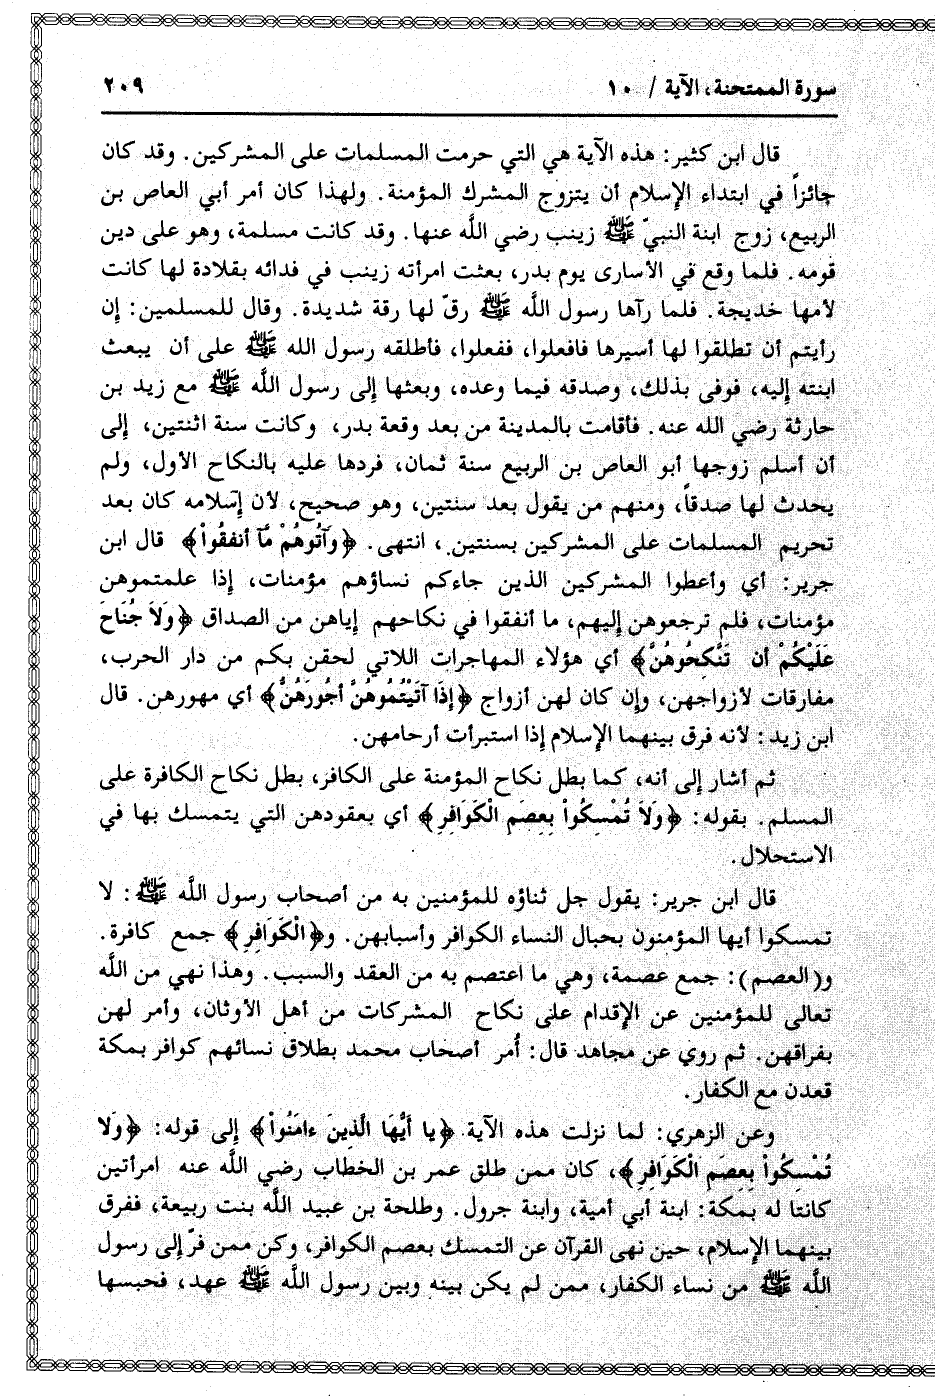 سورة الممتحنة، الآية / ١٠ ٢٠٩
قال ابن كثير: هذه الآية هي التي حرمت المسلمات على المشركين. وقد كان
جائزاً في ابتداء الإسلام أن يتزوج المشرك المؤمنة. ولهذا كان أمر أبي العاص بن
الربيع، زوج ابنة النبيّ ﷺ زينب رضي اللَّه عنها. وقد كانت مسلمة، وهو على دين
قومه. فلما وقع في الأسارى يوم بدر، بعثت امرأته زينب في فدائه بقلادة لها كانت
لأمها خديجة. فلما رآها رسول اللَّه ﷺ رقّ لها رقة شديدة. وقال للمسلمين: إن
رأيتم أن تطلقوا لها أسيرها فافعلوا، ففعلوا، فأطلقه رسول الله ﷺ على أن يبعث
ابنته إليه، فوفى بذلك، وصدقه فيما وعده، وبعثها إلى رسول اللَّه ﷺ مع زيد بن
حارثة رضي الله عنه. فأقامت بالمدينة من بعد وقعة بدر، وكانت سنة اثنتين، إلى
أن أسلم زوجها أبو العاص بن الربيع سنة ثمان، فردها عليه بالنكاح الأول، ولم
يحدث لها صدقاً، ومنهم من يقول بعد سنتين، وهو صحيح، لأن إسلامه كان بعد
تحريم المسلمات على المشركين بسنتين، انتهى. ﴿وَآتُوهُمْ مَّآ أنفقُواْ﴾ قال ابن
جرير: أي وأعطوا المشركين الذين جاءكم نساؤهم مؤمنات، إذا علمتموهن
مؤمنات، فلم ترجعوهن إليهم، ما أنفقوا في نكاحهم إياهن من الصداق ﴿وَلَا جُنَاحَ
عَلَيْكُمْ أن تَنْكِحُوهُنَّ﴾ أي هؤلاء المهاجرات اللاتي لحقن بكم من دار الحرب،
مفارقات لأزواجهن، وإن كان لهن أزواج ﴿إِذَا آتَيْتُمُوهُنَّ أجُورَهُنَّ﴾ أي مهورهن. قال
ابن زيد: لأنه فرق بينهما الإسلام إذا استبرأت أرحامهن.
ثم أشار إلى أنه، كما بطل نكاح المؤمنة على الكافر، بطل نكاح الكافرة على
المسلم. بقوله: ﴿وَلَا تُمْسِكُواْ بِعِصَمِ الْكَوَافِرِ﴾ أي بعقودهن التي يتمسك بها في
الاستحلال.
قال ابن جرير: يقول جل ثناؤه للمؤمنين به من أصحاب رسول اللَّه ﷺ: لا
تمسكوا أيها المؤمنون بحبال النساء الكوافر وأسبابهن. و﴿الْكَوَافِرِ﴾ جمع كافرة.
و(العصم): جمع عصمة، وهي ما اعتصم به من العقد والسبب. وهذا نهي من اللَّه
تعالى للمؤمنين عن الإقدام على نكاح المشركات من أهل الأوثان، وأمر لهن
بفراقهن. ثم روي عن مجاهد قال: أُمر أصحاب محمد بطلاق نسائهم كوافر بمكة
قعدن مع الكفار.
وعن الزهري: لما نزلت هذه الآية ﴿يا أيُّهَا الَّذِينَ ءامَنُواْ﴾ إلى قوله: ﴿وَلَا
تُمْسِكُواْ بِعِصَمِ الْكَوَافِرِ﴾، كان ممن طلق عمر بن الخطاب رضي اللَّه عنه امرأتين
كانتا له بمكة: ابنة أبي أمية، وابنة جرول. وطلحة بن عبيد اللَّه بنت ربيعة، ففرق
بينهما الإسلام، حين نهى القرآن عن التمسك بعصم الكوافر، وكن ممن فرّ إلى رسول
اللَّه ﷺ من نساء الكفار، ممن لم يكن بينه وبين رسول اللَّه ﷺ عهد، فحبسها